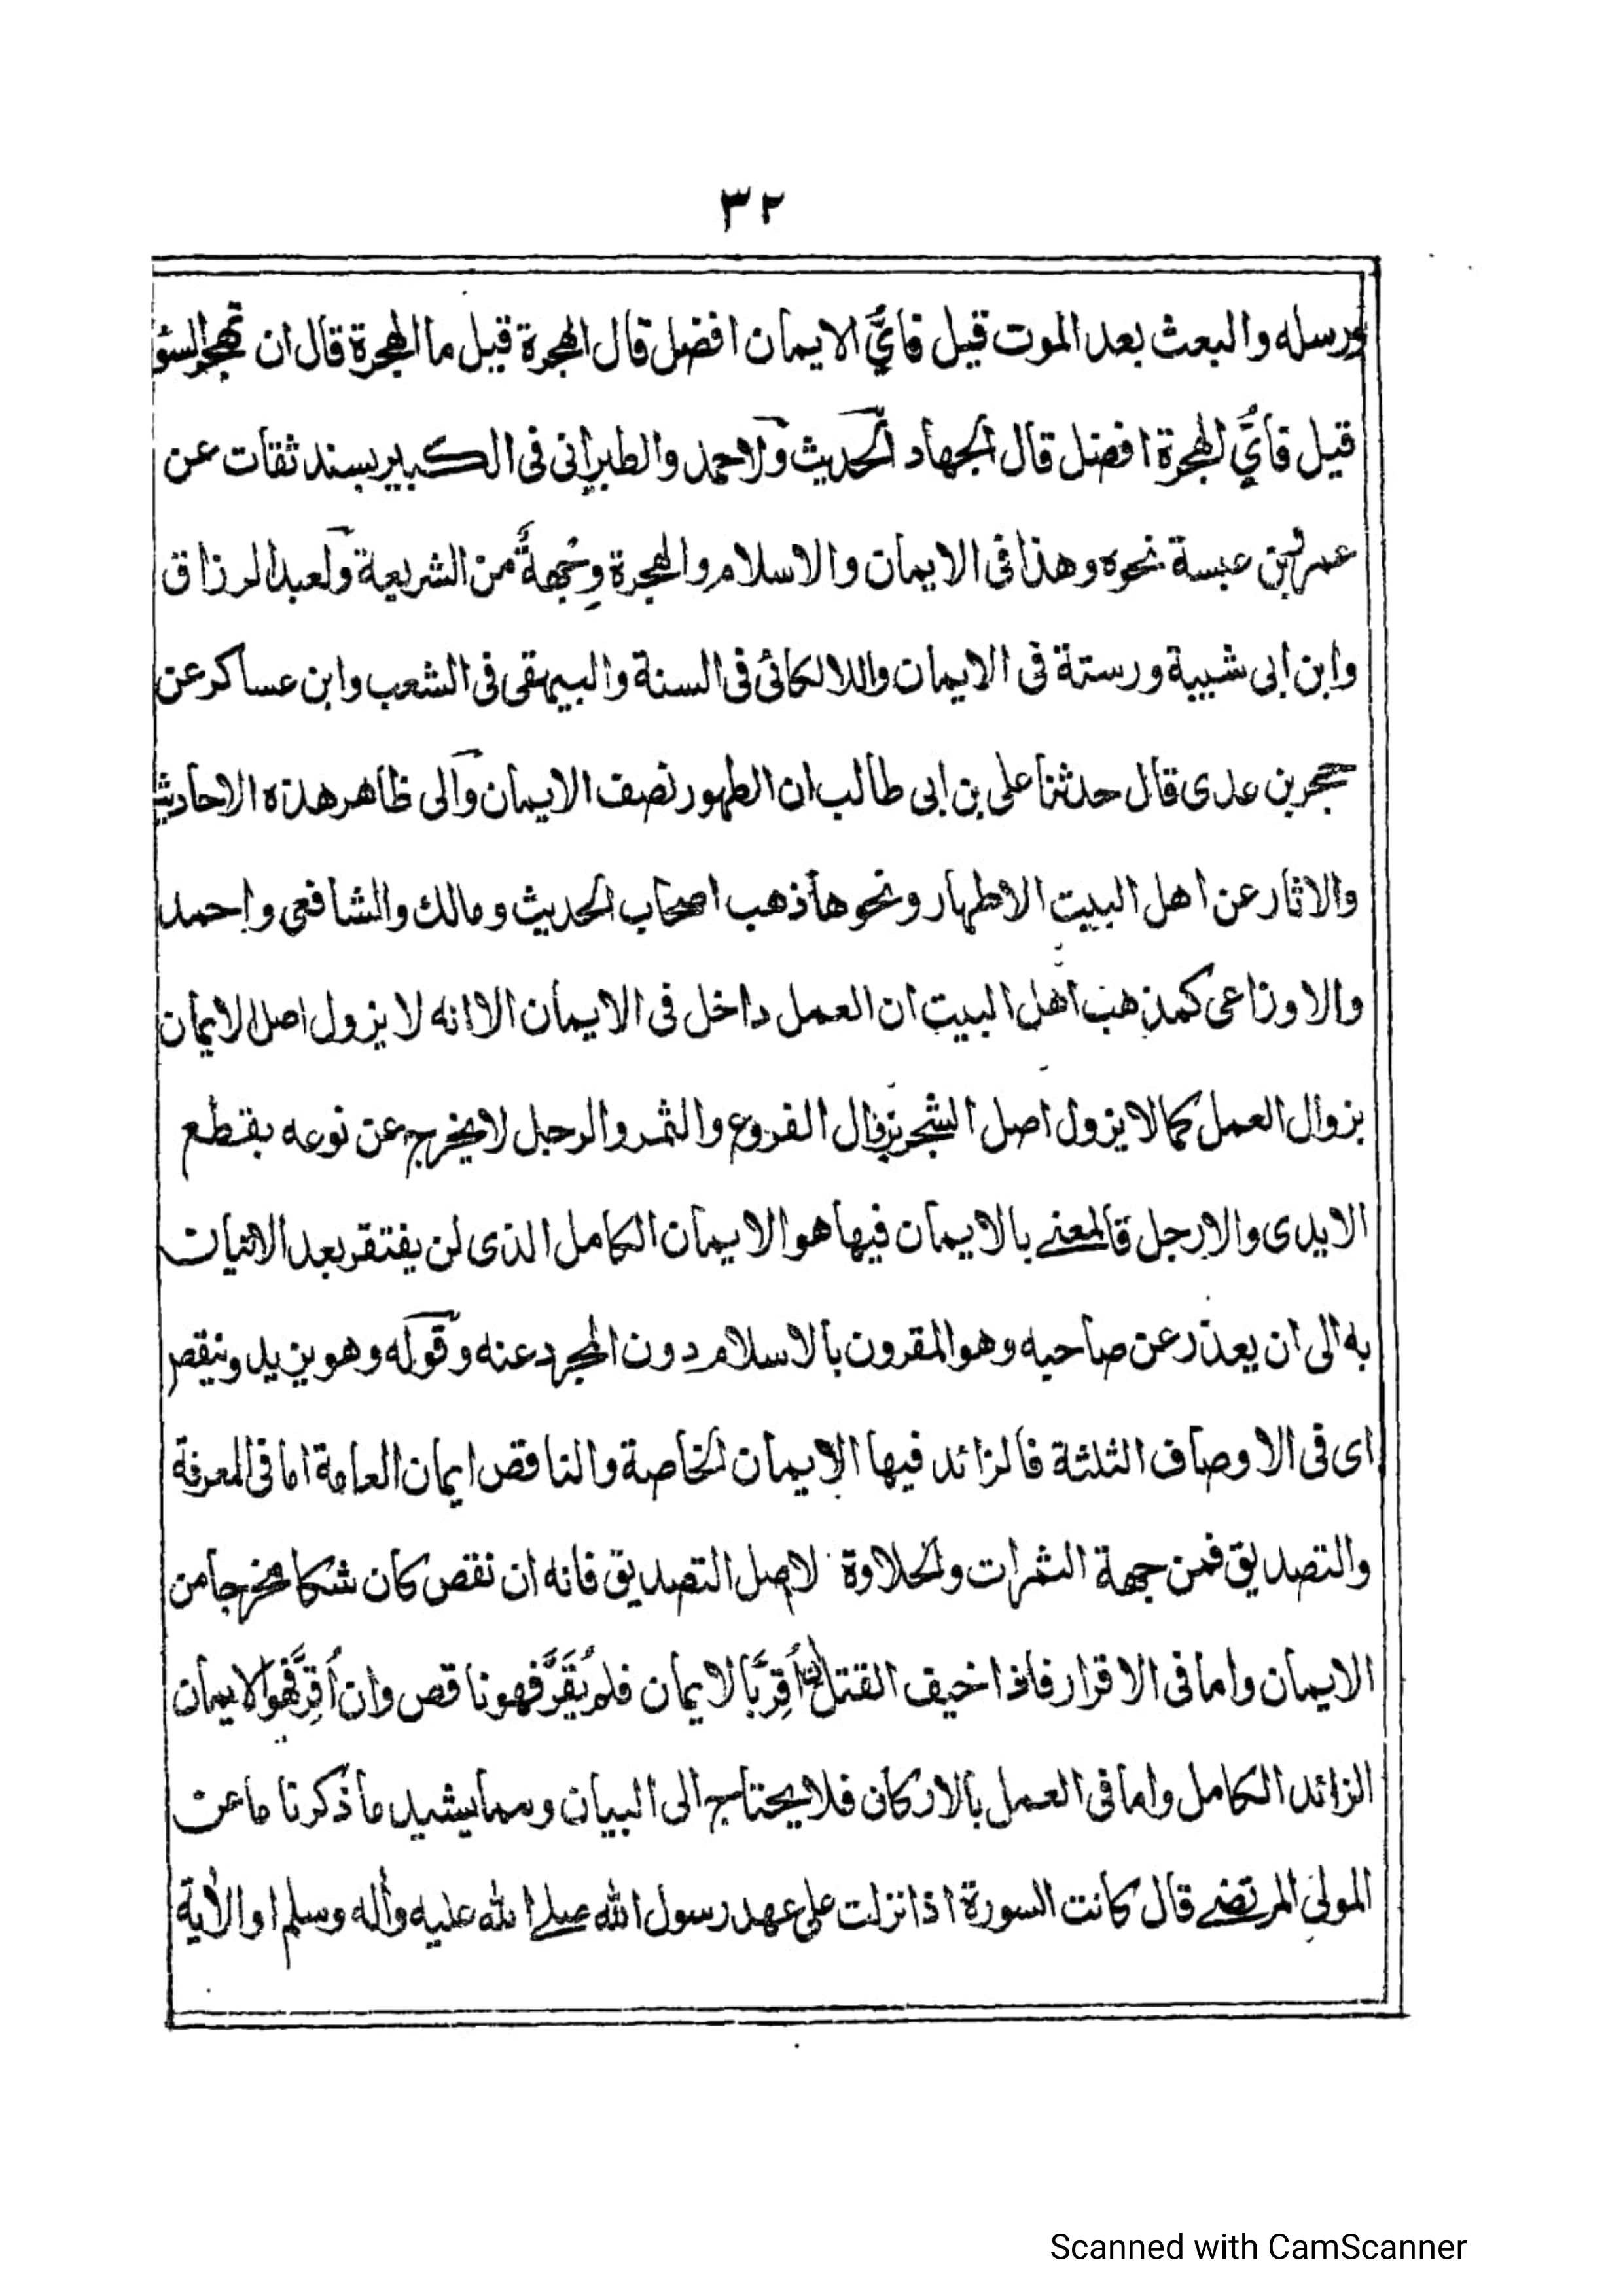 ٣٢
ورسله والبعث بعد الموت قيل فأيُّ الايمان افضل قال الهجرة قيل ما الهجرة قال ان تهجر السؤ
قيل فأيُّ الهجرة افضل قال الجهاد الحديث ولاحمد والطبرانى فى الكبير بسند ثقات عن
عمرو بن عبسة نحوه وهذا فى الايمان والاسلام والهجرة وجهةٌ من الشريعة ولعبد الرزاق
وابن ابى شيبة ورستة فى الايمان واللالكائى فى السنة والبيهقى فى الشعب وابن عساكر عن
حجر بن عدى قال حدثنا على بن ابى طالب ان الطهور نصف الايمان والى ظاهر هذه الاحاديث
والاثار عن اهل البيت الاطهار ونحوها ذهب اصحاب الحديث ومالك والشافعى واحمد
والاوزاعى كمذهب اهل البيت ان العمل داخل فى الايمان الا انه لا يزول اصل الايمان
بزوال العمل كما لا يزول اصل الشجر بزوال الفروع والثمر والرجل لا يخرج عن نوعه بقطع
الايدى والارجل فالمعنے بالايمان فيها هو الايمان الكامل الذى لن يفتقر بعد الاتيات
به الى ان يعذر عن صاحبه وهو المقرون بالاسلام دون المجرد عنه وقوله وهو يزيد وينقص
اى فى الاوصاف الثلثة فالزائد فيها الايمان الخاصة والناقص ايمان العامة اما فى المعرفة
والتصديق فمن جهة الثمرات والحلاوة لاصل التصديق فانه ان نقص كان شكا مخرجا من
الايمان واما فى الاقرار فاذا خيف القتل ان أَقِرَّ بالايمان فلم يُقَرَّ فهو ناقص وان أَقِرَّ فهو الايمان
الزائد الكامل واما فى العمل بالاركان فلا يحتاج الى البيان ومما يشيد ما ذكرنا ما عن
المولى المرتضے قال كانت السورة اذا نزلت على عهد رسول الله صلے الله عليه وأله وسلم او الأية
Scanned with CamScanner